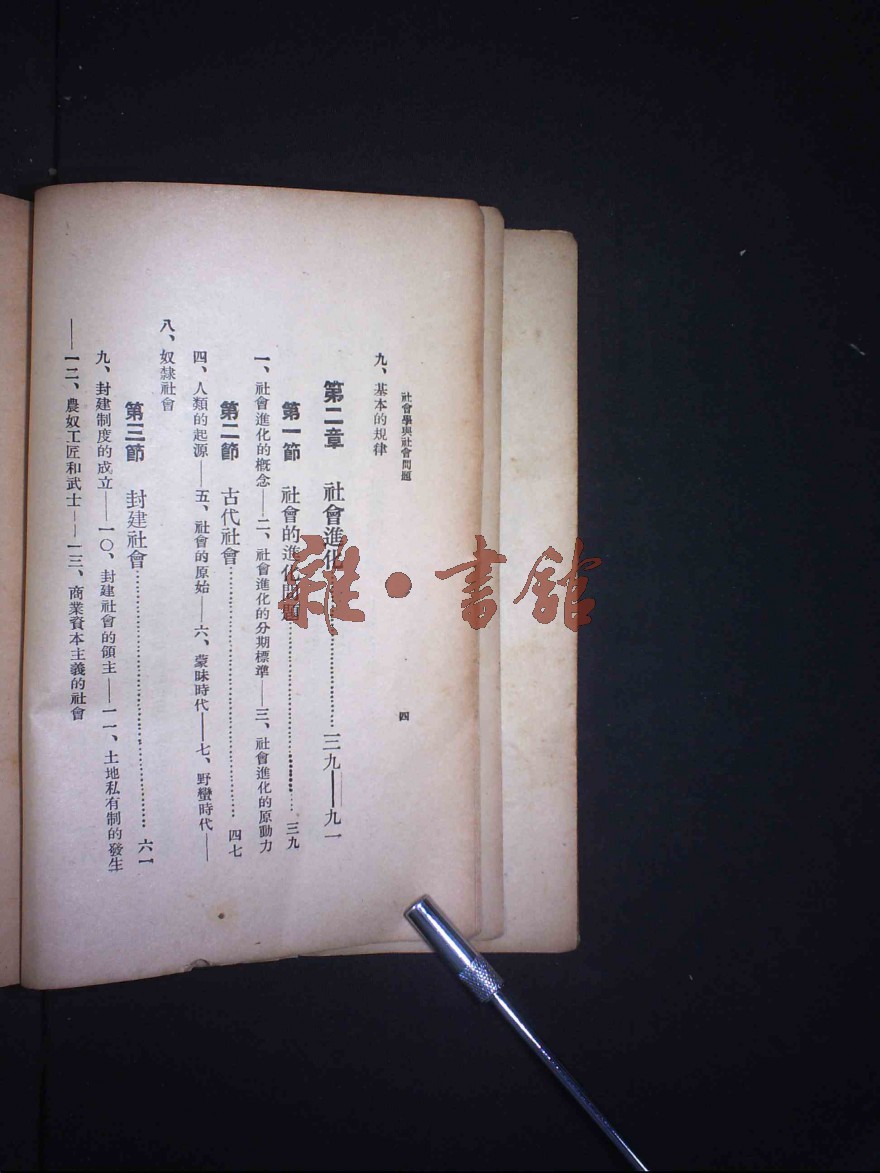 社會學與社會問題
四
九、基本的規律
第二章 社會進化………三九——九一
第一節 社會的進化問題………三九
一、社會進化的概念——二、社會進化的分期標準——三、社會進化的原動力
第二節 古代社會………四七
四、人類的起源——五、社會的原始——六、蒙昧時代——七、野蠻時代——
八、奴隸社會
第三節 封建社會………六一
九、封建制度的成立——一〇、封建社會的領主——一一、土地私有制的發生
——一二、農奴工匠和武士——一三、商業資本主義的社會
雜·書館